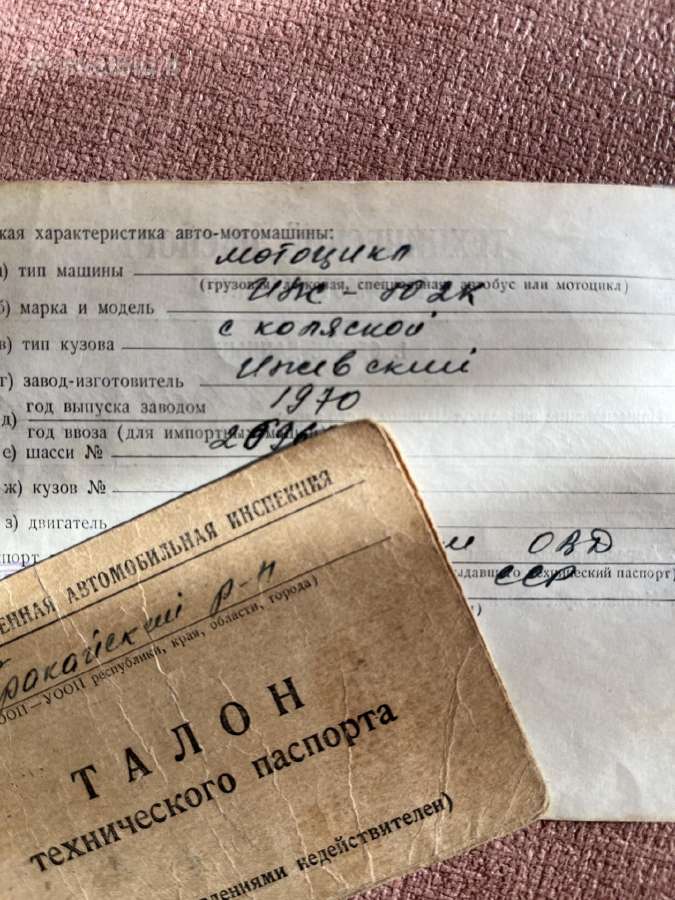 кая характеристика авто-мотомашины:
а) тип машины мотоцикл
(грузовая, легковая, специальная, автобус или мотоцикл)
б) марка и модель ИЖ-Ю2К
в) тип кузова с коляской
г) завод-изготовитель Ижевский
д) год выпуска заводом 1970
год ввоза (для импортных машин)
е) шасси №
ж) кузов №
з) двигатель
порт ОВД
выдавшего технический паспорт)
ССР
ЕННАЯ АВТОМОБИЛЬНАЯ ИНСПЕКЦИЯ
Тракайский р-н
ООП—УООП республики, края, области, города)
ТАЛОН
технического паспорта
недействителен)